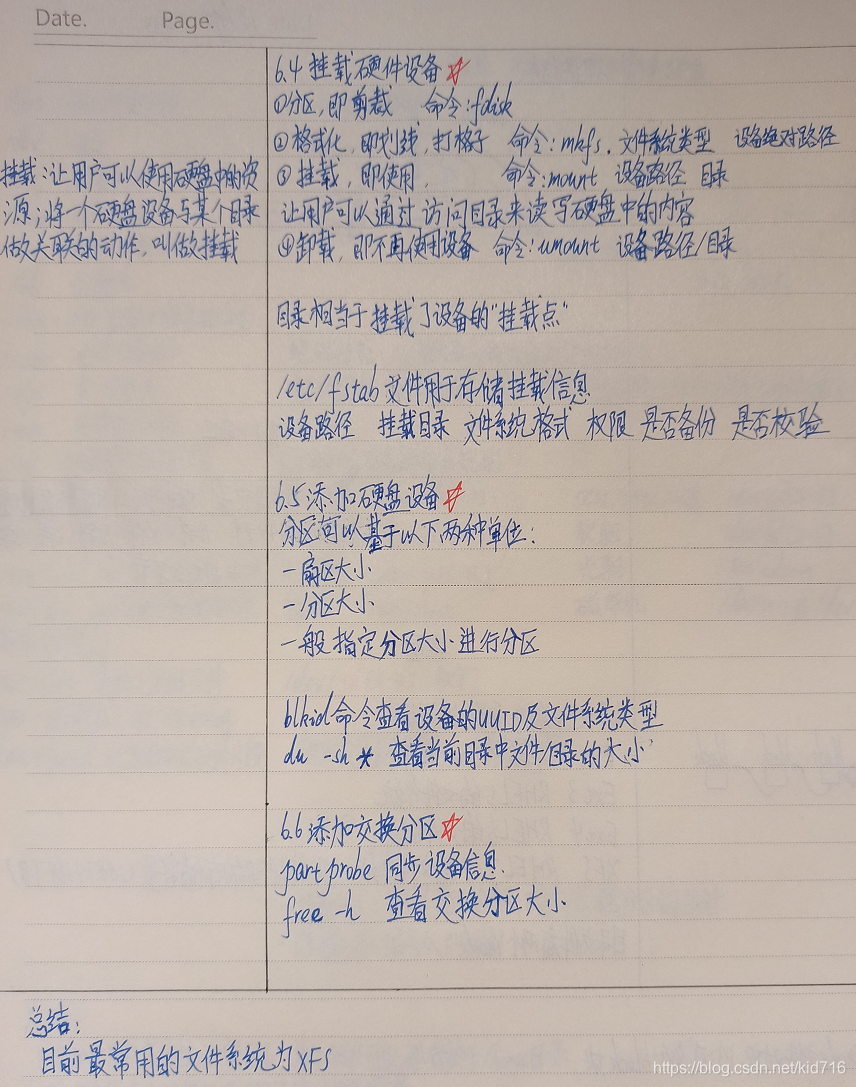 Date. Page.
6.4 挂载硬件设备 ☆
①分区,即剪裁 命令:fdisk
②格式化,即划线,打格子 命令:mkfs.文件系统类型 设备绝对路径
③挂载,即使用, 命令:mount 设备路径 目录
让用户可以通过访问目录来读写硬盘中的内容
④卸载,即不再使用设备 命令:umount 设备路径/目录
挂载:让用户可以使用硬盘中的资
源;将一个硬盘设备与某个目录
做关联的动作,叫做挂载
目录相当于挂载了设备的"挂载点"
/etc/fstab文件用于存储挂载信息
设备路径 挂载目录 文件系统格式 权限 是否备份 是否校验
6.5添加硬盘设备 ☆
分区可以基于以下两种单位:
-扇区大小
-分区大小
一般指定分区大小进行分区
blkid命令查看设备的UUID及文件系统类型
du -sh * 查看当前目录中文件/目录的大小
6.6添加交换分区 ☆
partprobe 同步设备信息
free -h 查看交换分区大小
总结:
目前最常用的文件系统为XFS
https://blog.csdn.net/kid716